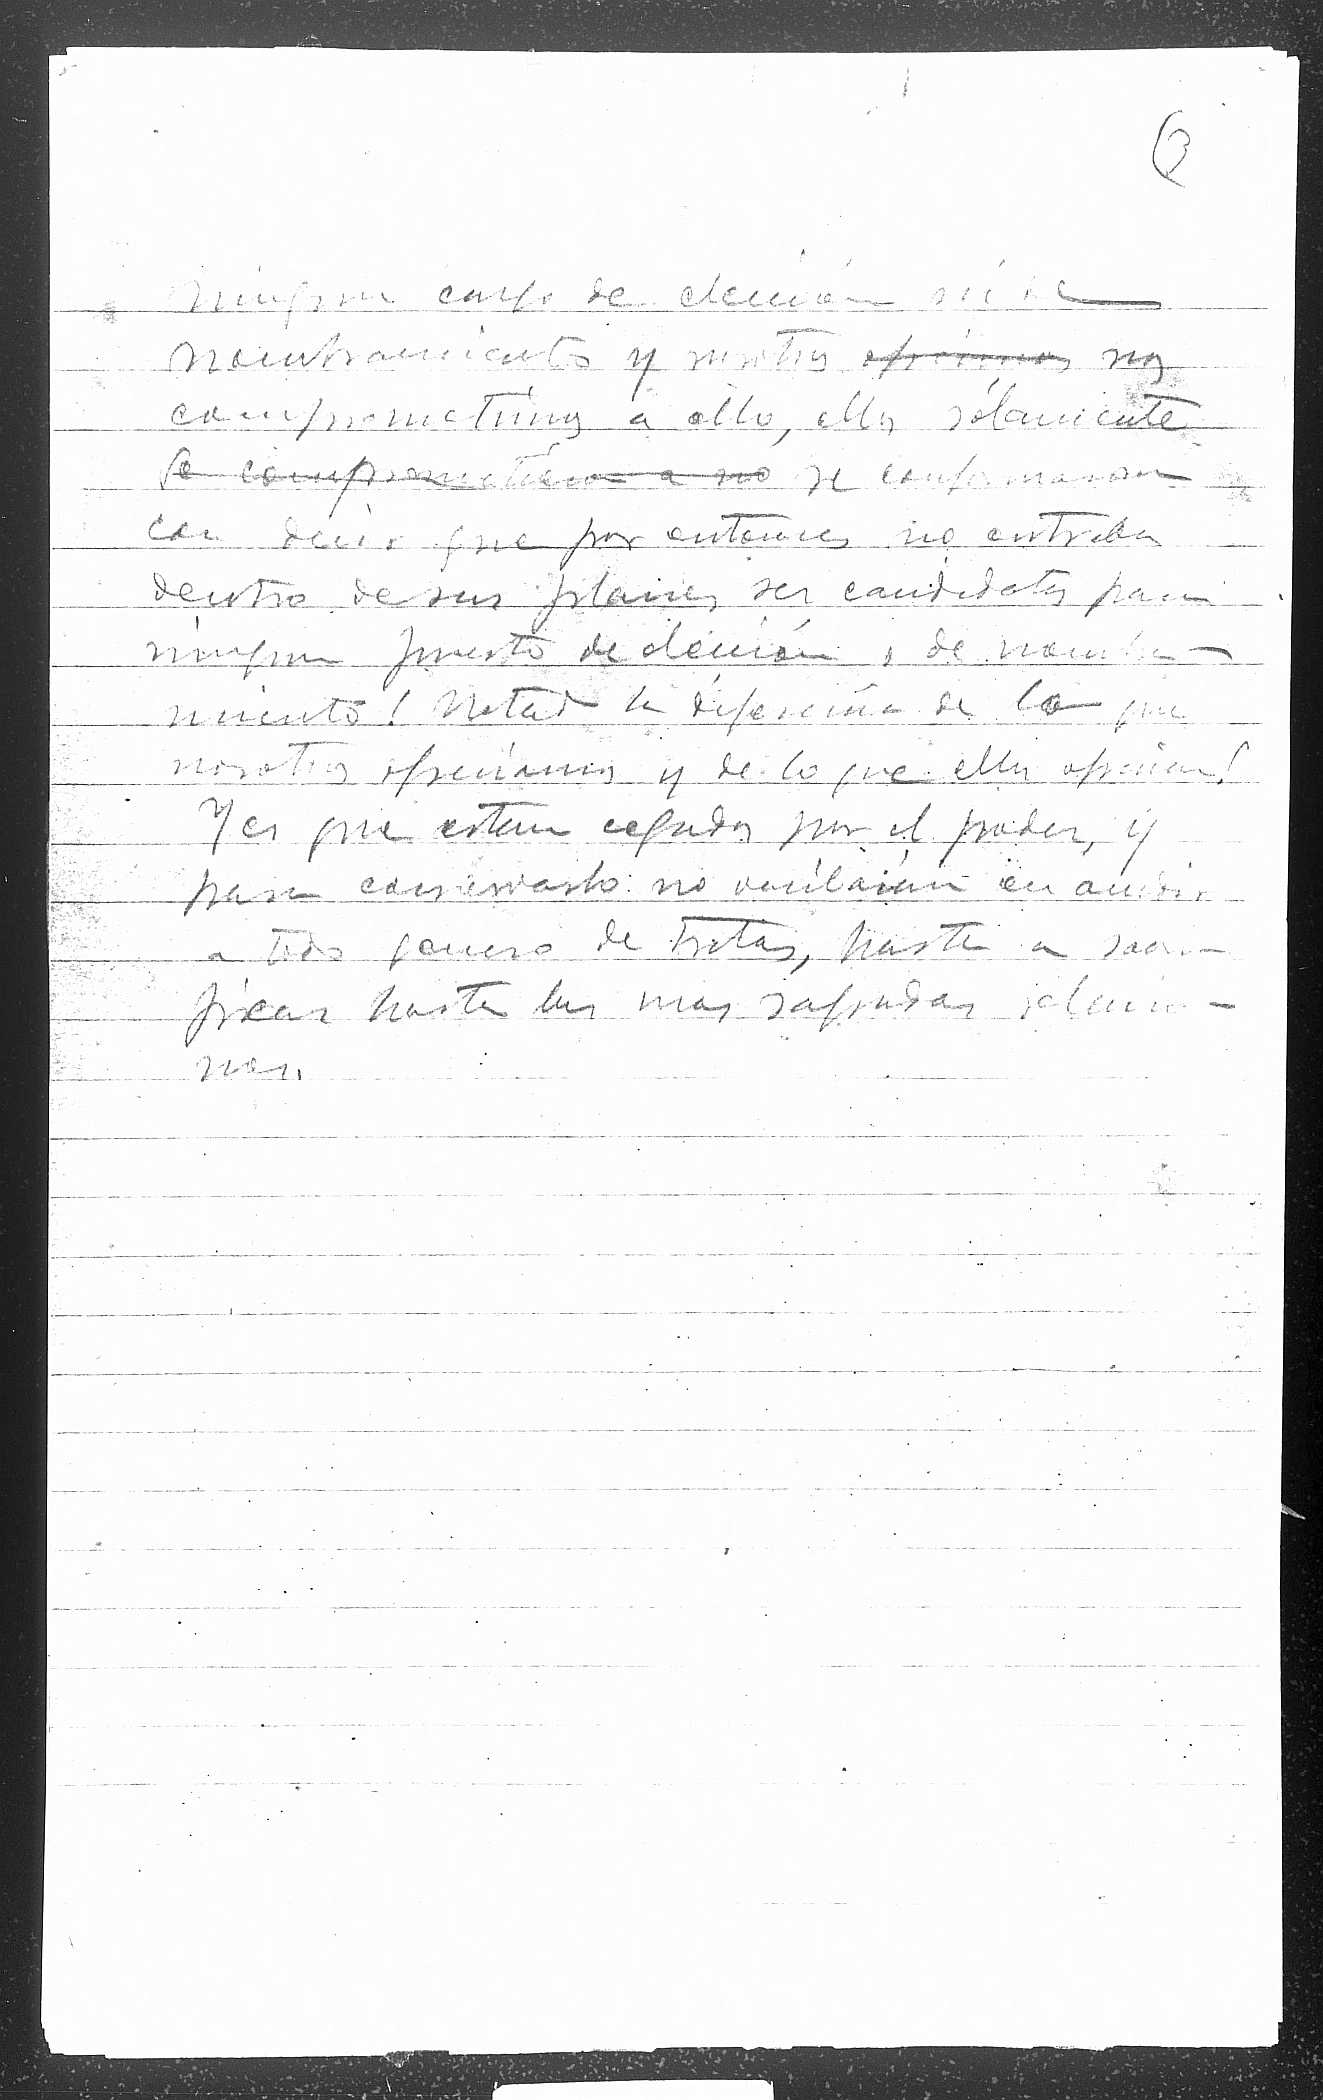 3
ningun cargo de elección ni de
nombramiento y nosotros ofrecimos nos
comprometimos a ello, ellos sólamente
se comprometieron a no se conformaron
con decir que por entonces no entraba
dentro de sus planes ser candidatos para
ningun puesto de elección o de nombra-
miento! Notad la diferencia de lo que
nosotros ofreciamos y de lo que ellos ofrecian!
Y es que estan cegados por el poder, y
para conservarlo no vacilarian en acudir
a todo genero de tretas, hasta a sacri-
ficar hasta las mas sagradas